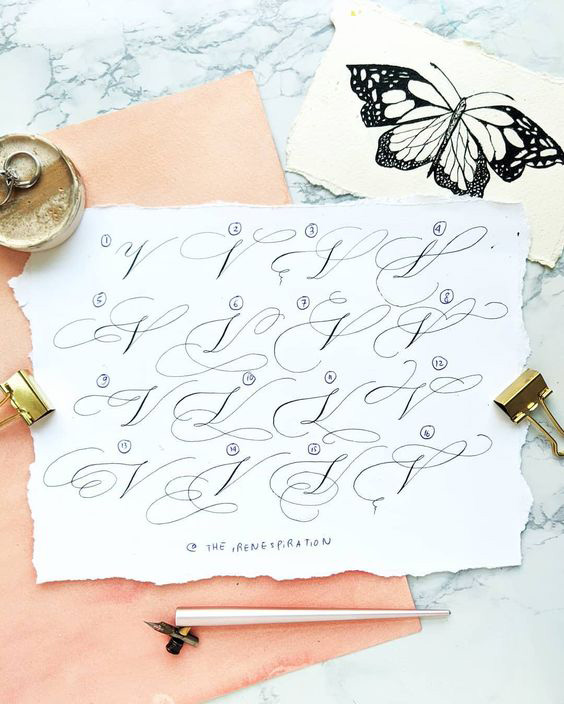 ① V ② V ③ V ④ V
⑤ V ⑥ V ⑦ V ⑧ V
⑨ V ⑩ V ⑪ V ⑫ V
⑬ V ⑭ V ⑮ V ⑯ V
@ THE iRENESPiRATION